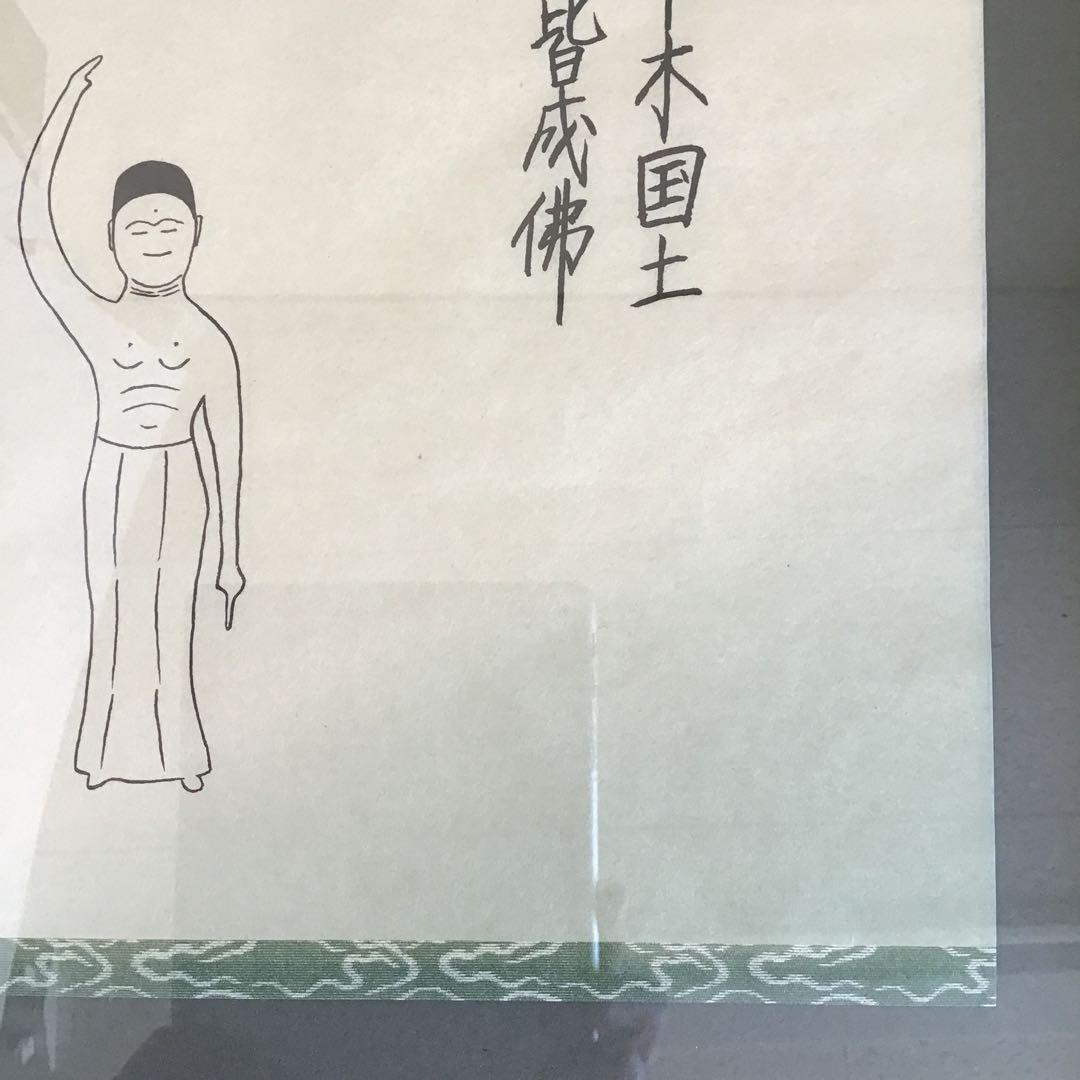 木国土
皆成佛